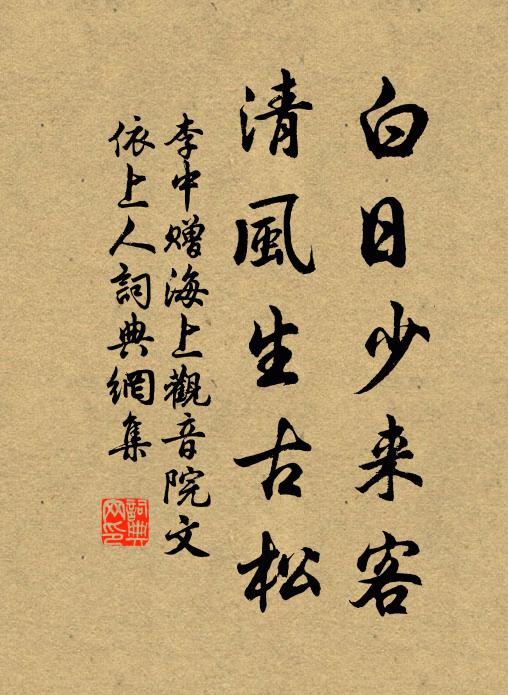 白日少来客
清風生古松
李中贈海上觀音院文
依上人詞典網集
詞典
网印